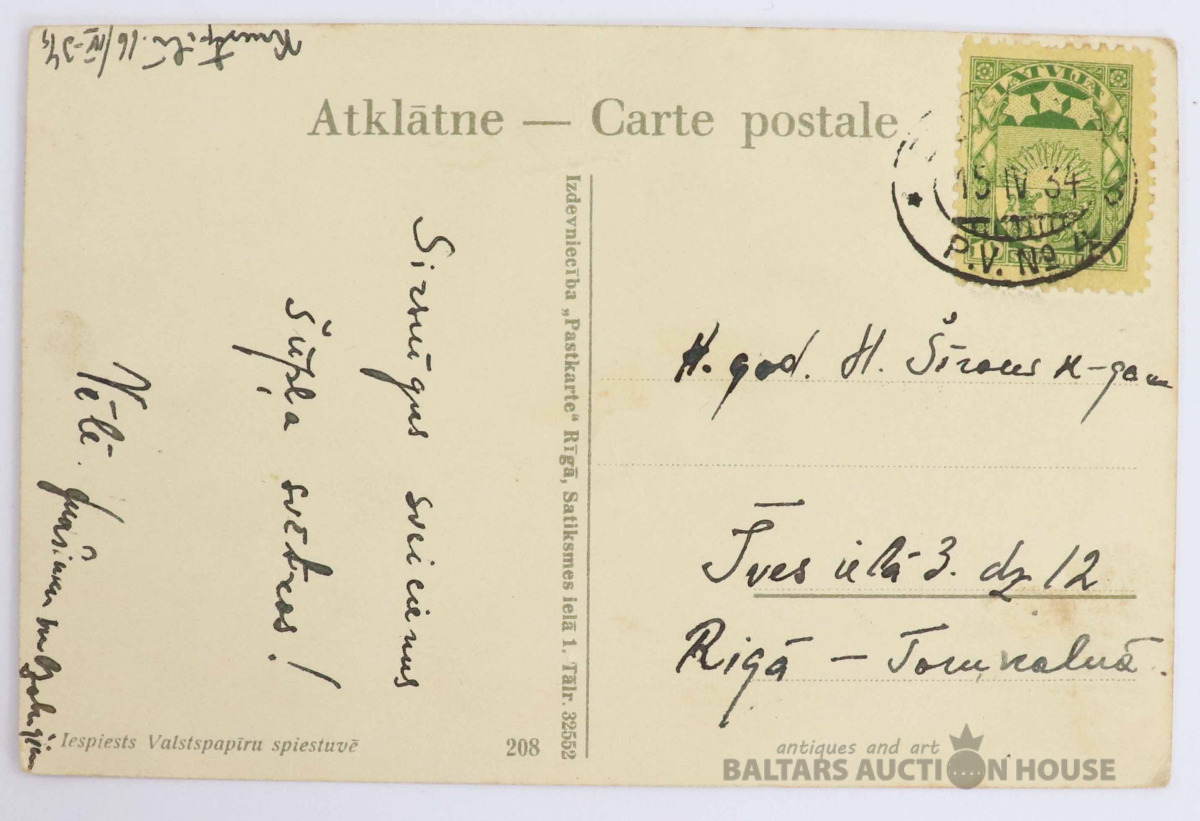 Atklātne — Carte postale
LATVIJA
15 IV 34
P.V. Nº
16/IV-34
Sirsnīgus sveicienus
svētkos!
Vēlē.
Izdevniecība „Pastkarte“ Rīgā, Satiksmes ielā 1. Tālr. 32552
H. god. H. k-gam
ielā 3. dz 12
Rīgā — Torņkalnā.
Iespiests Valstspapīru spiestuvē
208
antiques and art
BALTARS AUCTION HOUSE